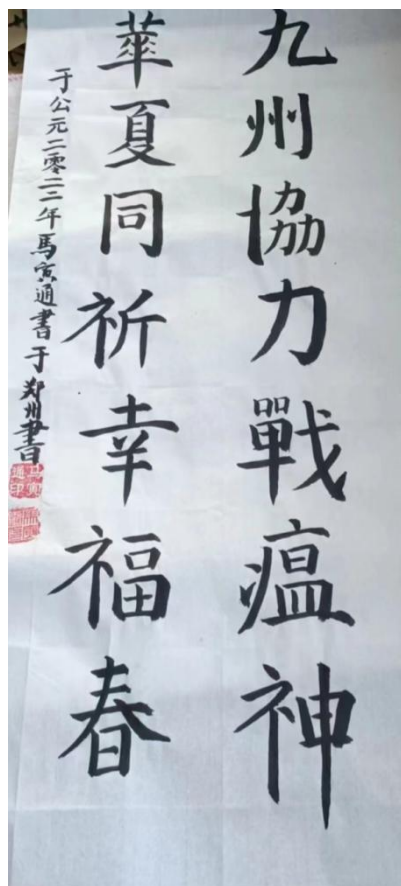 九州協力戰瘟神
華夏同祈幸福春
于公元二零二二年馬寅通書于郑州書
马寅通印